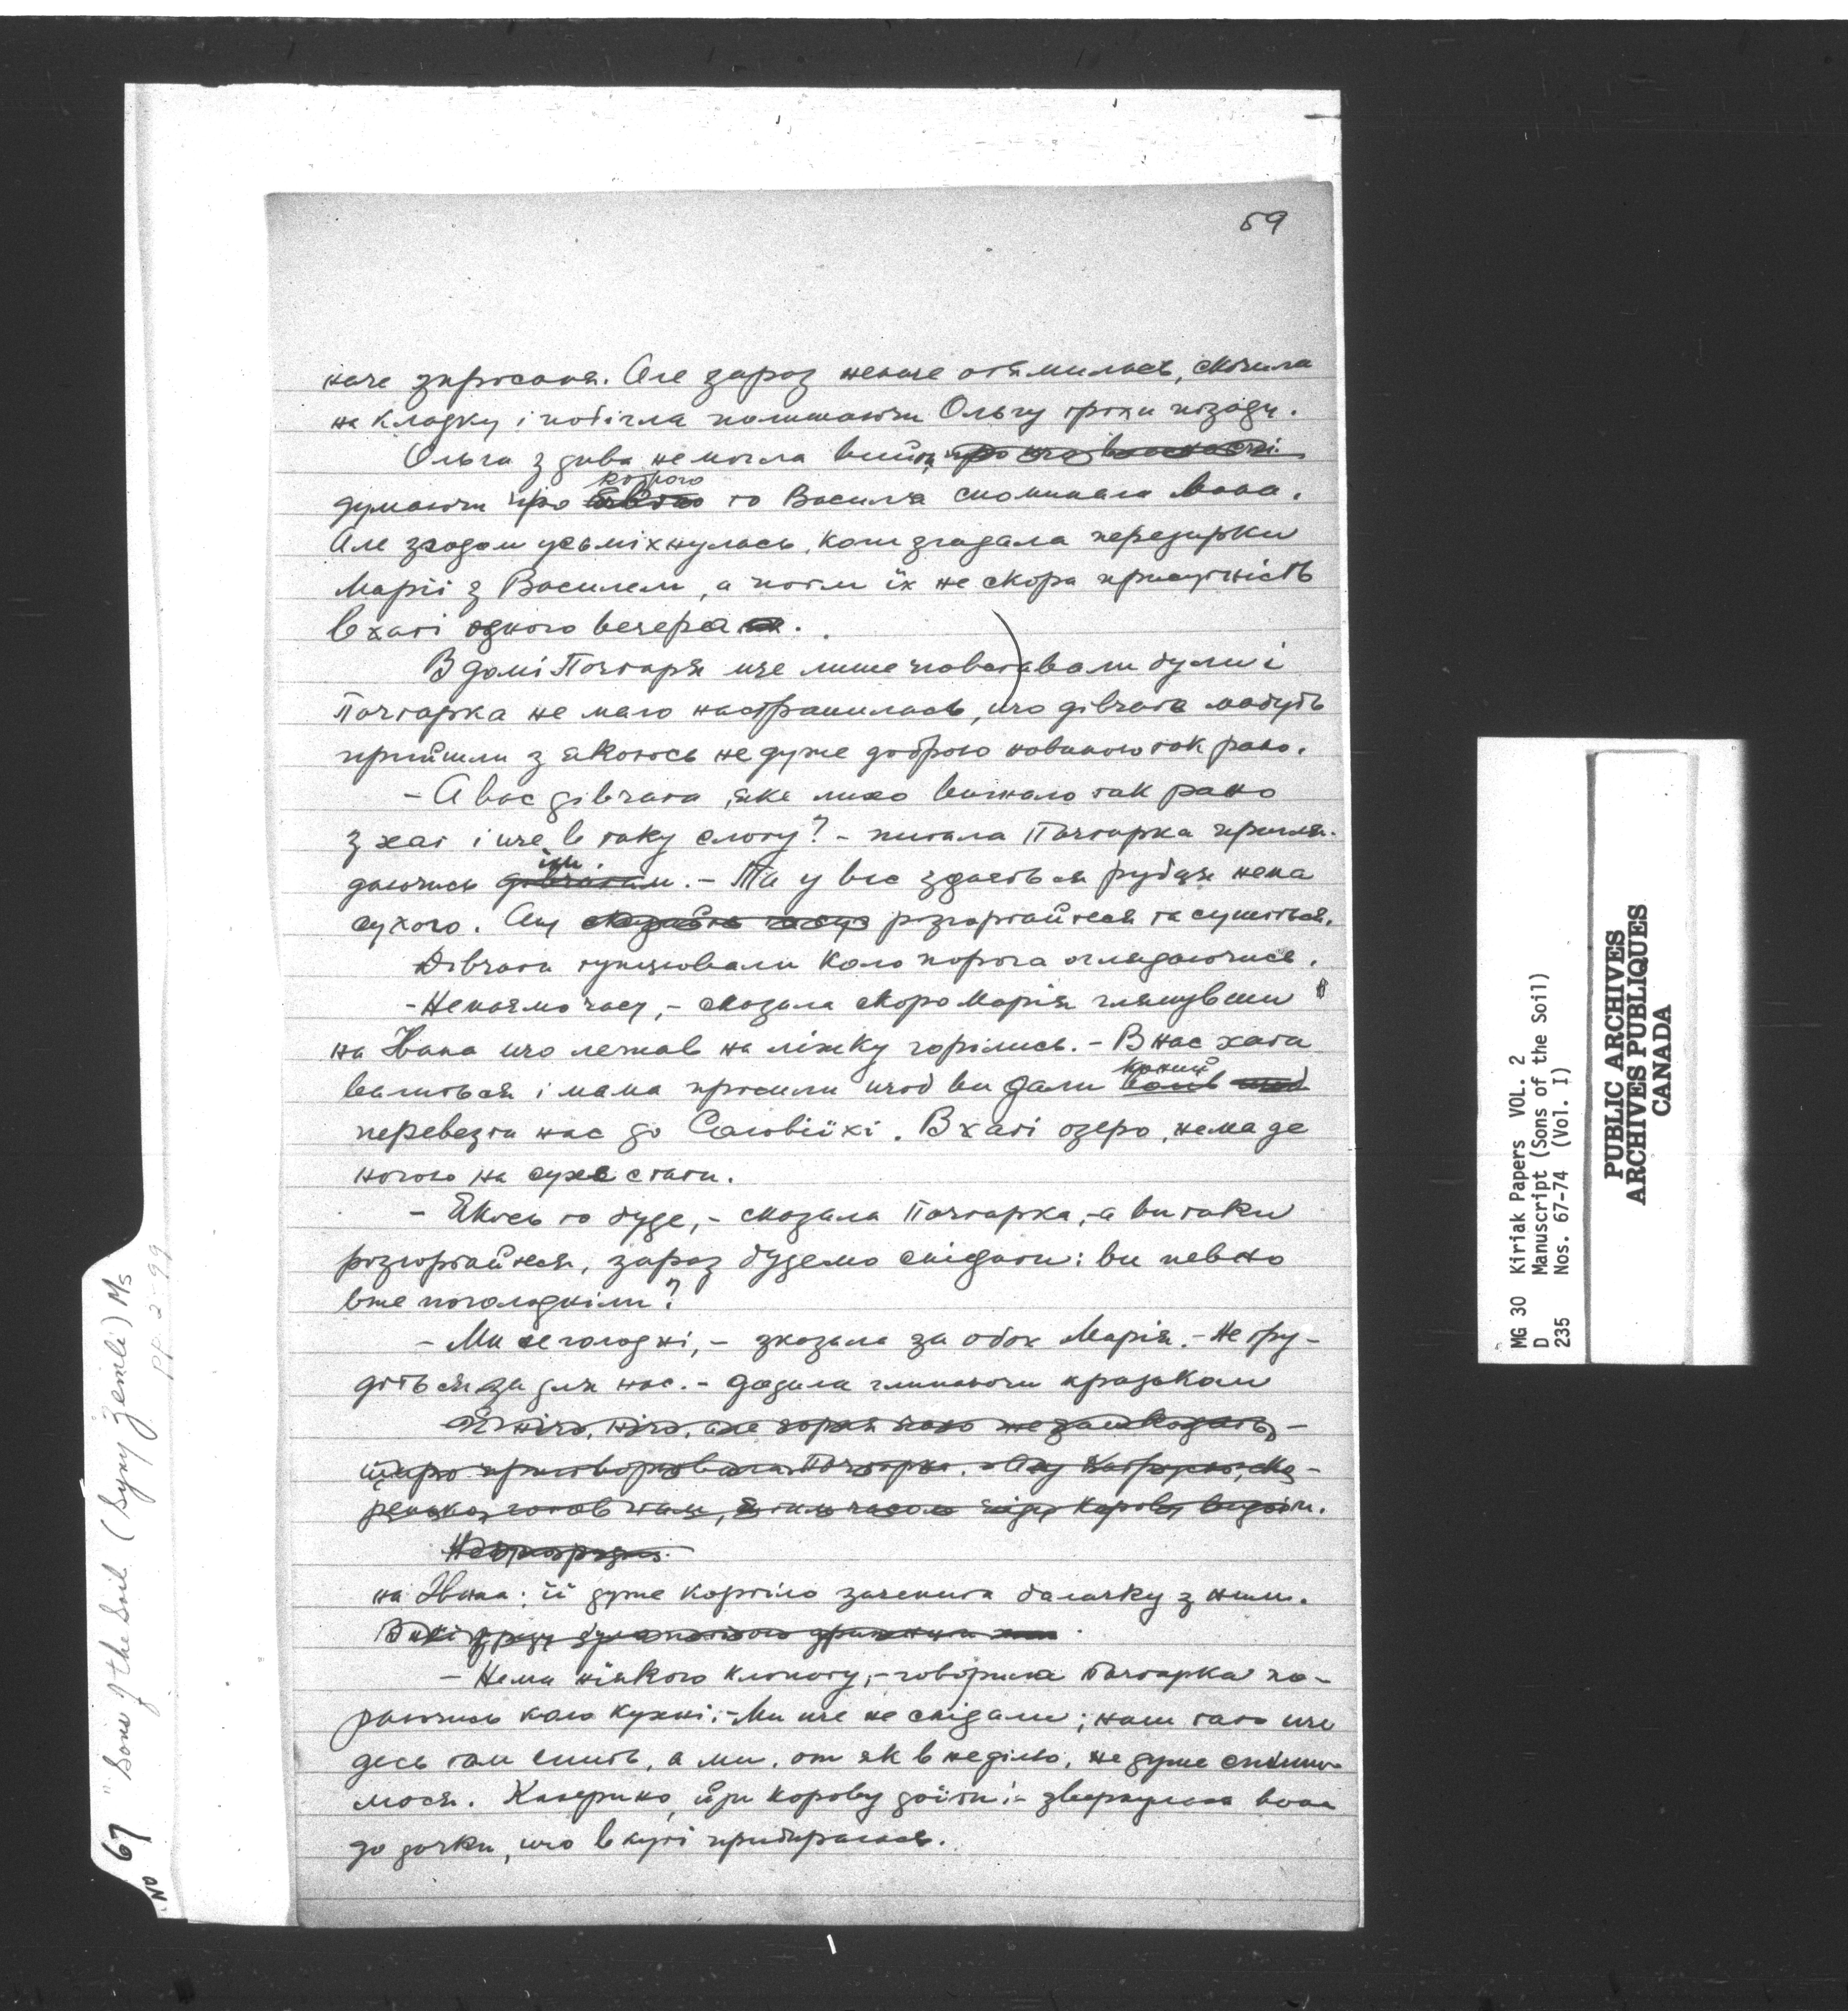 59
наче запросоня. Але зараз неначе отямилась, скочила
на кладку і побігла полишаючи Ольгу трохи позаду.
Ольга з дива не могла вийти,
котрого
думаючи про то Василя споминала вона.
Але згодом усьміхнулась, коли згадала передирки
Марії з Василем, а потім їх не скора присутність
в хаті одного вечера.
В домі Почтаря ще лише повставали були і
Почтарка не мало настрашилась, що дівчата мабуть
прийшли з якоюсь не дуже доброю новиною так рано.
- А вас дівчата, яке лихо вигнало так рано
з хат і ще в таку слоту? - питала Почтарка пригля-
їм.
даючись дівчатам. - Та у вас здаєтьcя рубця нема
сухого. Ану розгортайтеся та сушіться.
Дівчата тупцювали коло порога оглядаючись.
- Не маємо часу, - сказала скоро Марія глянувши
на Івана що лежав на ліжку горілиць. - В нас хата
коний
валиться і мама просили щоб ви дали волів щоб
перевезти нас до Соловійхі. В хаті озеро, нема де
ногою на сухе стати.
- Якось то буде, - сказала Почтарка, - а ви таки
розгортайтеся, зараз будемо снідати: ви певно
вже поголодніли?
- Ми не голодні, - зказала за обох Марія. - Не тру-
діться за для нас. - додала глипаючи крадьком
Й нічо, нічо, але горяч чаю не зашкодить, -
щиро приговорювала Почтарка.
корову видоїти.
на Івана: її дуже кортіло зачепити балачку з ним.
- Нема ніякого клопоту, - говорила Почтарка по-
раючись коло кухні. - Ми ще не снідали; наш тато ще
десь там спить, а ми, от як в неділю, не дуже спішимо
мося. Катерино, йди корову доїти: - звернулась вона
до дочки, що в куті прибиралась.
No 67 "Sons of the Soil" (Syny Zemli) Ms
pp. 2-99
MG 30 Kiriak Papers VOL. 2
D Manuscript (Sons of the Soil)
235 Nos. 67-74 (Vol. I)
PUBLIC ARCHIVES
ARCHIVES PUBLIQUES
CANADA